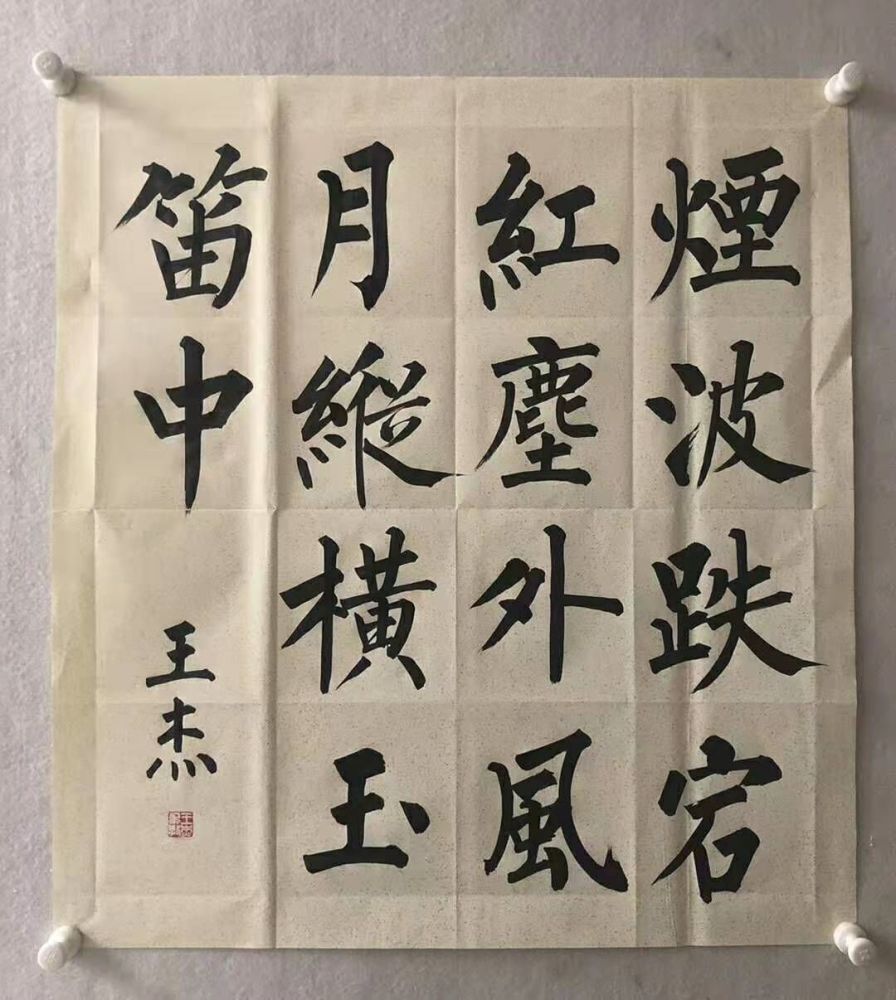 煙波跌宕
紅塵外風
月縱橫玉
笛中
王杰